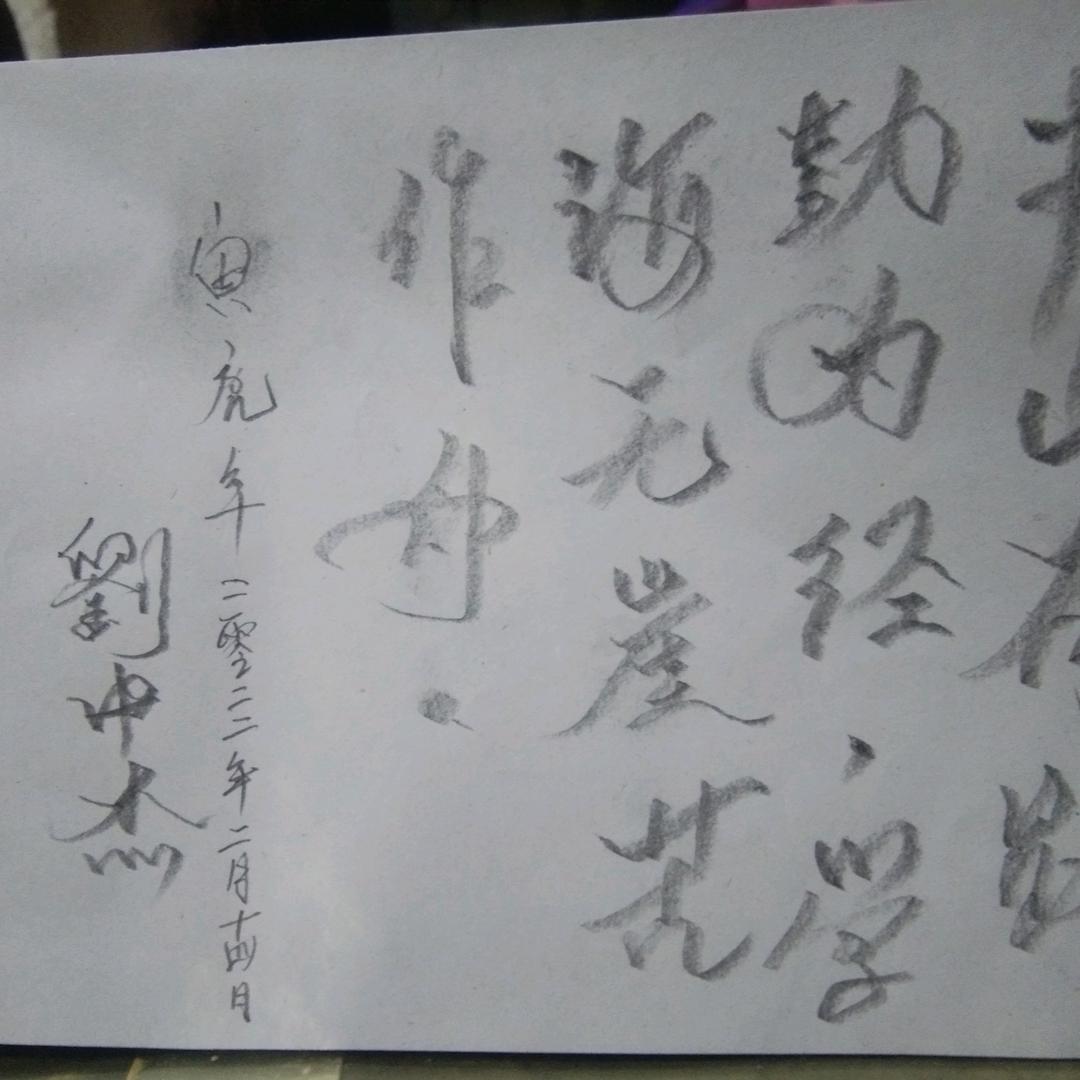 书山有路
勤为经、学
海无崖苦
作舟.
寅虎年二零二二年二月十四日
劉中杰